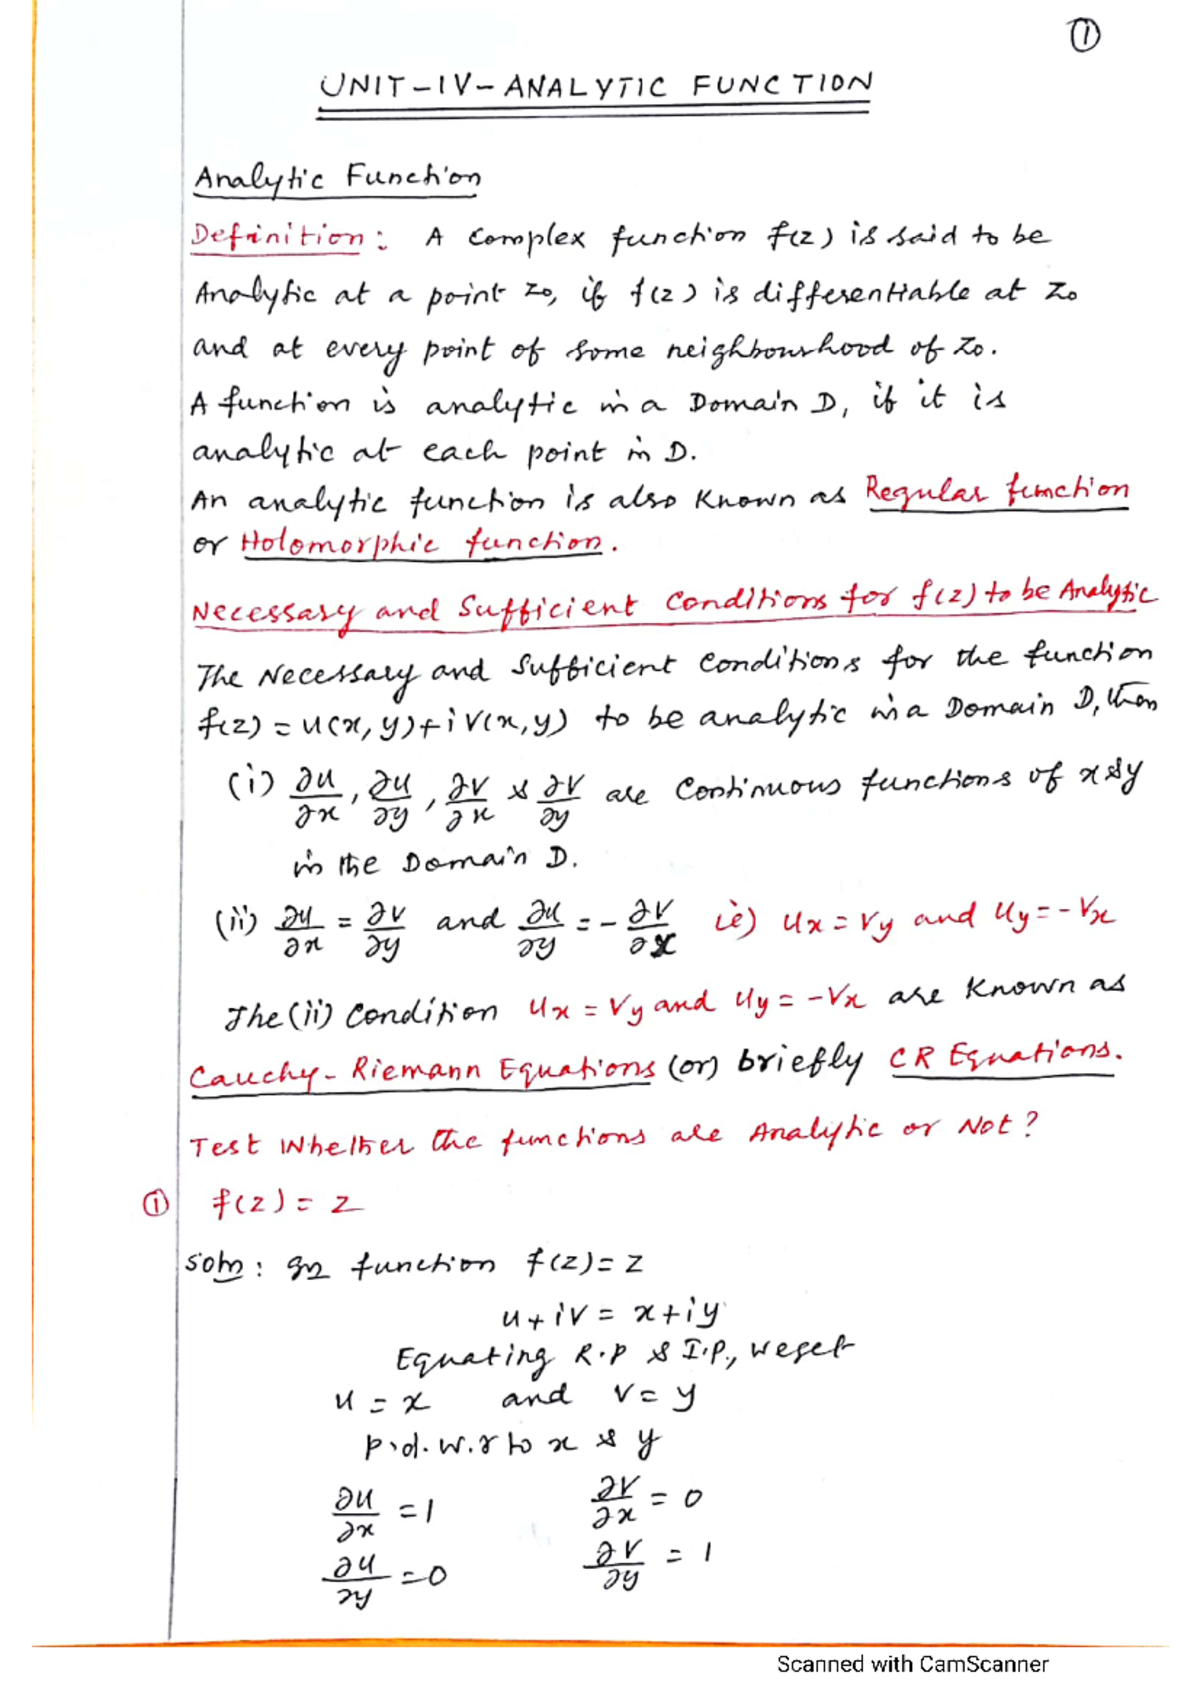 ①
UNIT-IV-ANALYTIC FUNCTION
Analytic Function
Definition: A complex function f(z) is said to be
Analytic at a point z₀, if f(z) is differentiable at z₀
and at every point of some neighbourhood of z₀.
A function is analytic in a Domain D, if it is
analytic at each point in D.
An analytic function is also known as Regular function
or Holomorphic function.
Necessary and Sufficient Conditions for f(z) to be Analytic
The Necessary and Sufficient Conditions for the function
f(z) = u(x,y)+iv(x,y) to be analytic in a Domain D, then
(i) ∂u/∂x, ∂u/∂y, ∂v/∂x & ∂v/∂y are Continuous functions of x&y
in the Domain D.
(ii) ∂u/∂x = ∂v/∂y and ∂u/∂y = -∂v/∂x ie) ux = vy and uy = -vx
The (ii) Condition ux = vy and uy = -vx are known as
Cauchy-Riemann Equations (or) briefly CR Equations.
Test Whether the functions are Analytic or Not?
① f(z) = z
Soln: function f(z) = z
u+iv = x+iy
Equating R.P & I.P., we get
u = x and v = y
p.d. w.r to x & y
∂u/∂x = 1 ∂v/∂x = 0
∂u/∂y = 0 ∂v/∂y = 1
Scanned with CamScanner